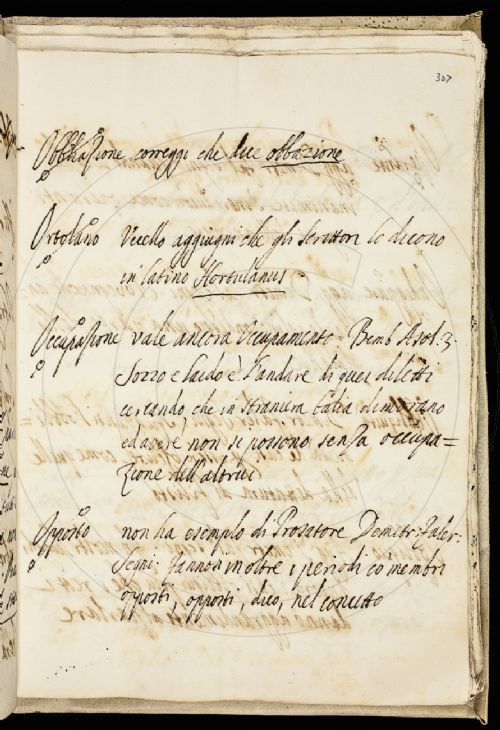 307
Obblazione correggi che dice obbazione
Ortolano Uccello aggiugni che gli scrittori lo dicono
in latino Hortulanus
Occupazione vale ancora Occupamento. Bemb. Asol. 3.
Sozzo e laido è l'andare di quei diletti
cercando che in straniera balìa dimorano
ed avere non si possono senza occupa=
zione dell'altrui
Opposto non ha esempio di Prosatore Demetr: Faler:
Segni: Fannosi inoltre i periodi co' membri
opposti, opposti, dico, nel concetto